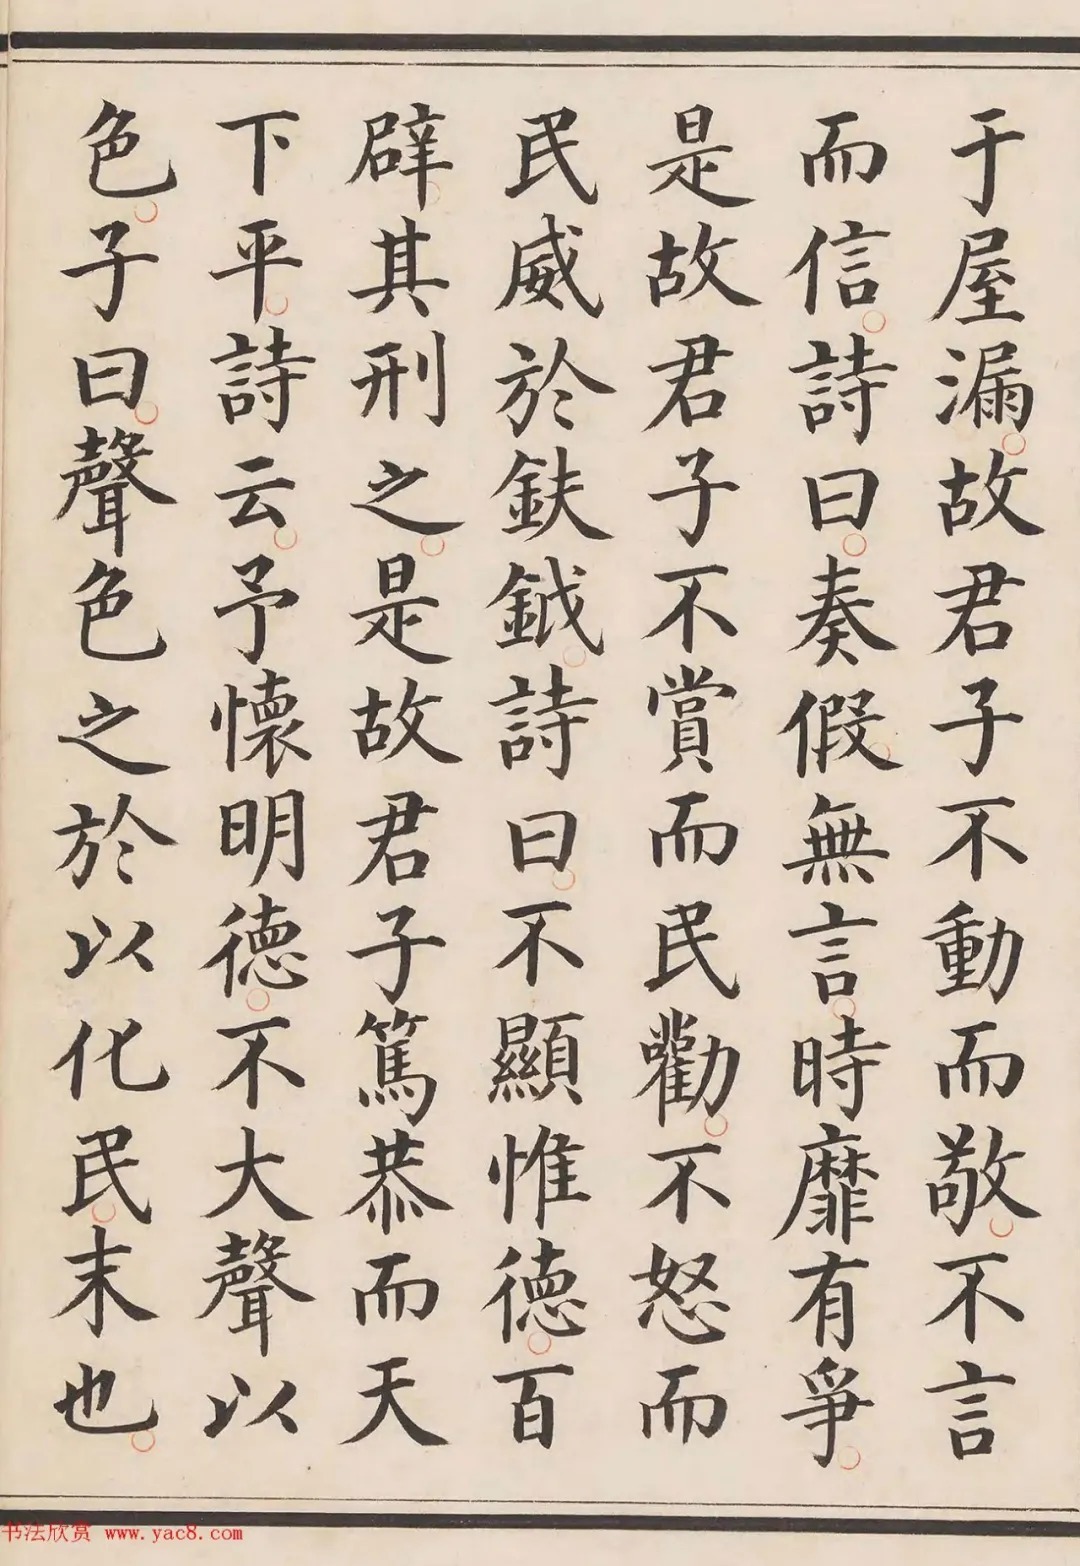 于屋漏故君子不動而敬不言
而信詩曰奏假無言時靡有爭
是故君子不賞而民勸不怒而
民威於鈇鉞詩曰不顯惟德百
辟其刑之是故君子篤恭而天
下平詩云予懷明德不大聲以
色子曰聲色之於以化民末也
书法欣赏 www.yac8.com